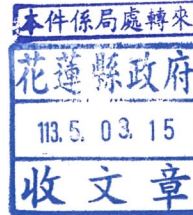 本件係局處轉來
花蓮縣政府
113.5.03.15
收文章